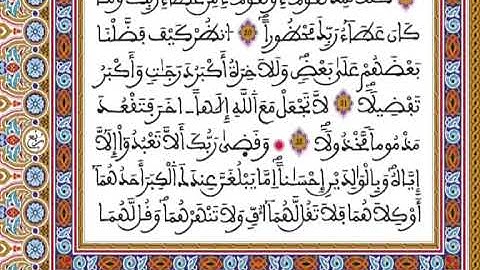 كُلّاً نُّمِدُّ هَٰٓؤُلَآءِ وَهَٰٓؤُلَآءِ مِنْ عَطَآءِ رَبِّكَ وَمَا
كَانَ عَطَآءُ رَبِّكَ مَحْظُوراًۖ 20 اَ۟نظُرْ كَيْفَ فَضَّلْنَا
بَعْضَهُمْ عَلَىٰ بَعْضٖۖ وَلَلَاخِرَةُ أَكْبَرُ دَرَجَٰتٖ وَأَكْبَرُ
تَفْضِيلاًۖ 21 لَّا تَجْعَلْ مَعَ اَ۬للَّهِ إِلَٰهاً ـاخَرَ فَتَقْعُدَ
مَذْمُوماً مَّخْذُولاًۖ 22 وَقَضَىٰ رَبُّكَ أَلَّا تَعْبُدُوٓاْ إِلَّآ
إِيَّاهُۖ وَبِالْوَٰلِدَيْنِ إِحْسَٰناًۖ اِمَّا يَبْلُغَنَّ عِندَكَ اَ۬لْكِبَرَ أَحَدُهُمَآ
أَوْ كِلَٰهُمَا فَلَا تَقُل لَّهُمَآ أُفّٖ وَلَا تَنْهَرْهُمَاۖ وَقُل لَّهُمَا